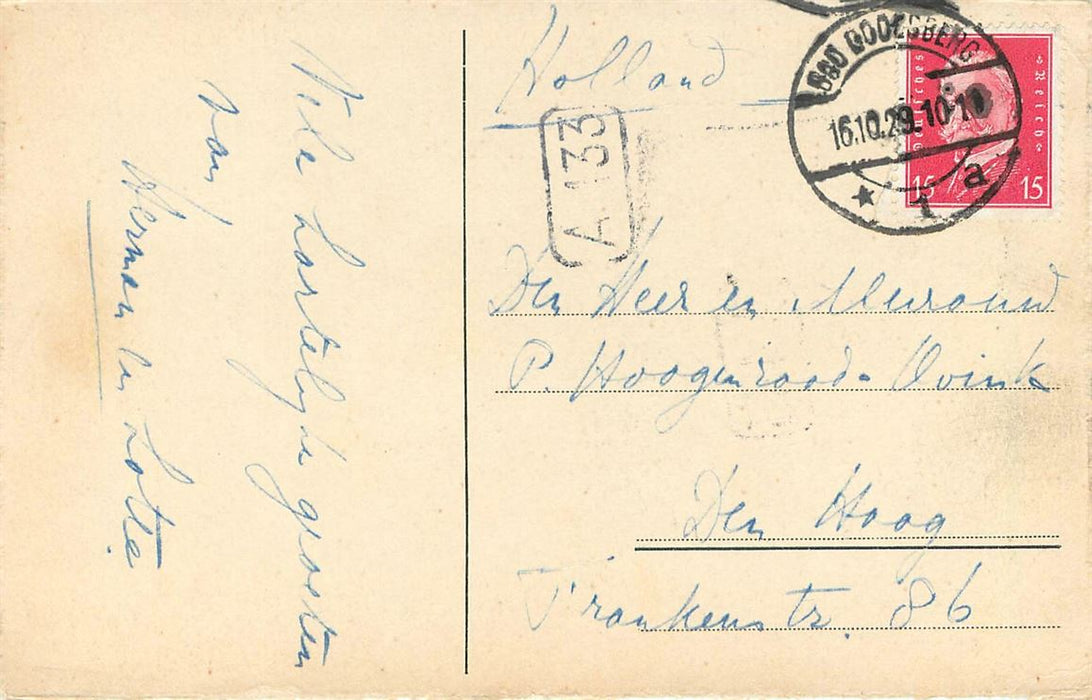 Vele hartelijke groeten
van
Herman en Lotte
Holland
A 133
BAD GODESBERG
16.10.29.10-11
* 1 a
Deutsches Reich
15 15
Den Heer en Mevrouw
P. Hoogenraad-Ovink
Den Haag
Frankenstr. 86